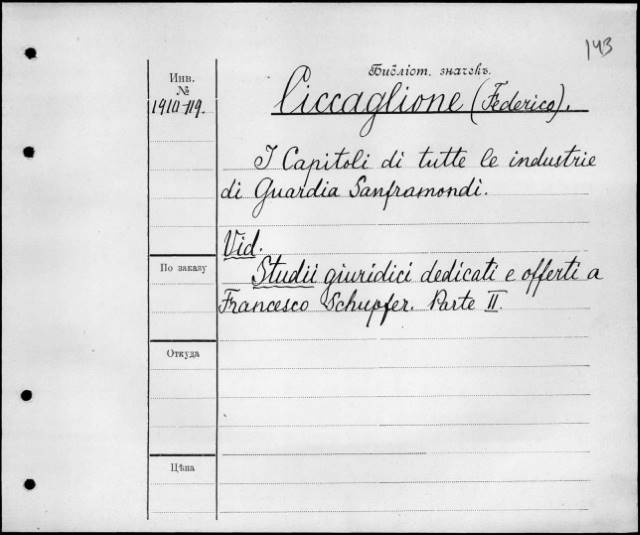 143
Библіот. значекъ.
Инв.
№
1910-119.
Ciccaglione (Federico).
I Capitoli di tutte le industrie
di Guardia Sanframondi.
Vid.
По заказу
Studii giuridici dedicati e offerti a
Francesco Schupfer. Parte II.
Откуда
Цѣна